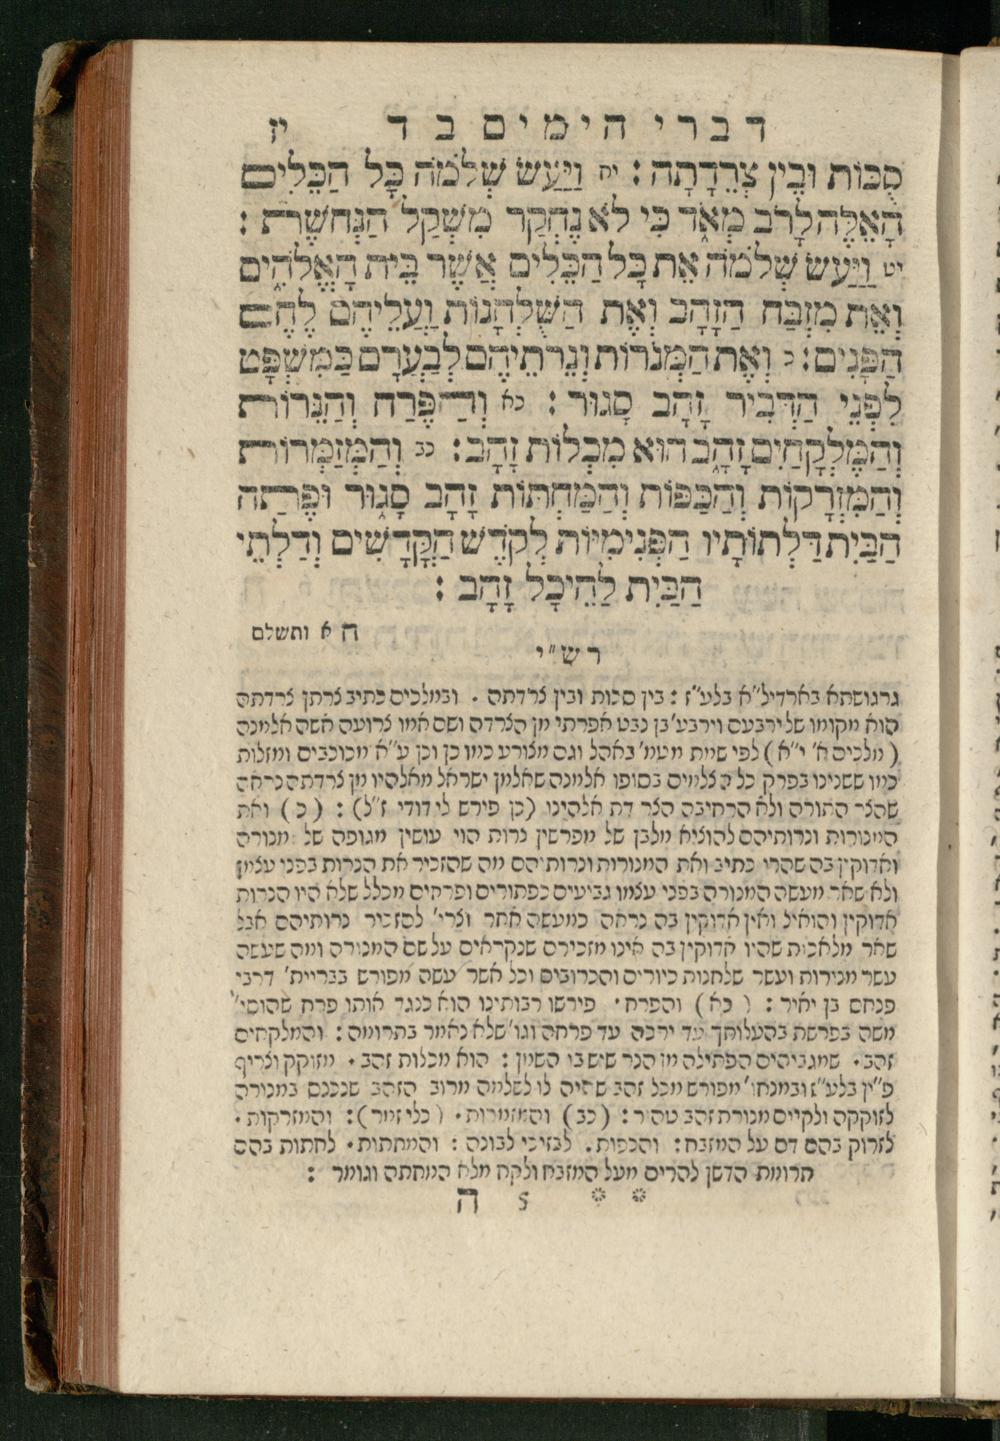 דברי הימים ב ד יז
סֻכּוֹת וּבֵין צְרֵדָתָה : יח וַיַּעַשׂ שְׁלֹמֹה כָּל הַכֵּלִים
הָאֵלֶּה לָרֹב מְאֹד כִּי לֹא נֶחְקַר מִשְׁקַל הַנְּחֹשֶׁת :
יט וַיַּעַשׂ שְׁלֹמֹה אֵת כָּל הַכֵּלִים אֲשֶׁר בֵּית הָאֱלֹהִים
וְאֵת מִזְבַּח הַזָּהָב וְאֶת הַשֻּׁלְחָנוֹת וַעֲלֵיהֶם לֶחֶם
הַפָּנִים : כ וְאֶת הַמְּנֹרוֹת וְנֵרֹתֵיהֶם לְבַעֲרָם כַּמִּשְׁפָּט
לִפְנֵי הַדְּבִיר זָהָב סָגוּר : כא וְהַפֶּרַח וְהַנֵּרוֹת
וְהַמֶּלְקָחַיִם זָהָב הוּא מִכְלוֹת זָהָב : כב וְהַמְזַמְּרוֹת
וְהַמִּזְרָקוֹת וְהַכַּפּוֹת וְהַמַּחְתּוֹת זָהָב סָגוּר וּפֶתַח
הַבַּיִת דַּלְתוֹתָיו הַפְּנִימִיּוֹת לְקֹדֶשׁ הַקֳּדָשִׁים וְדַלְתֵי
הַבַּיִת לַהֵיכָל זָהָב :
ה א ותשלם
רש"י
גרגושתא בארדיל"א בלע"ז : בין סכות ובין צרדתה . ובמלכים כתיב צרתן צרדתה
הוא מקומו של ירבעם וירבע' בן נבט אפרתי מן הצרדה ושם אמו צרועה אשה אלמנה
( מלכים א' י"א ) לפי שמת מטמ' באהל וגם מצורע כמו כן וכן ע"א מכוכבים ומזלות
כמו ששנינו בפרק כל הצלמים בסופו אלמנה שאלמן ישראל מאלהיו מן צרדתה כראה
שהצר התורה ולא הרחיבה הצר דת אלהינו (כן פירש לי דודי ז"ל) : ( כ ) ואת
המנורות ונרותיהם להוציא מלבן של מפרשין נרות הוי עושין מגופה של מנורה
ואדוקין בה שהרי כתיב ואת המנורות ונרותיהם מה שהזכיר את הנרות בפני עצמן
ולא שאר מעשה המנורה בפני עצמו גביעים כפתורים ופרחים מכלל שלא היו הנרות
אדוקין והואיל ואין אדוקין בה נראה כמעשה אחר וצרי' להזכיר נרותיהם אבל
שאר מלאכות שהיו אדוקין בה אינו מזכירם שנקראים על שם המנורה ומה שעשה
עשר מנורות ועשר שלחנות כיורים והכרובים וכל אשר עשה מפורש בבריית' דרבי
פנחס בן יאיר : ( כא ) והפרח . פירשו רבותינו הוא כנגד אותו פרח שהוסי'
משה בפרשת בהעלותך עד ירכה עד פרחה וגו' שלא נאמר בתרומה : והמלקחים
זהב . שמגביהים הפתילה מן הנר שיש בו השמן : הוא מכלות זהב . מזוקק וצריף
פ"ין בלע"ז ובמנחו' מפורש מכל זהב שהיה לו לשלמה מרוב הזהב שנכנס במנורה
לזוקקה ולקיים מנורת זהב טהור : ( כב ) והמזמרות . ( כלי זמר ) : והמזרקות .
לזרוק בהם דם על המזבח : והכפות . לבזיכי לבונה : והמחתות . לחתות בהם
תרומת הדשן להרים מעל המזבח ולקח מלא המחתה וגומר :
5 ה